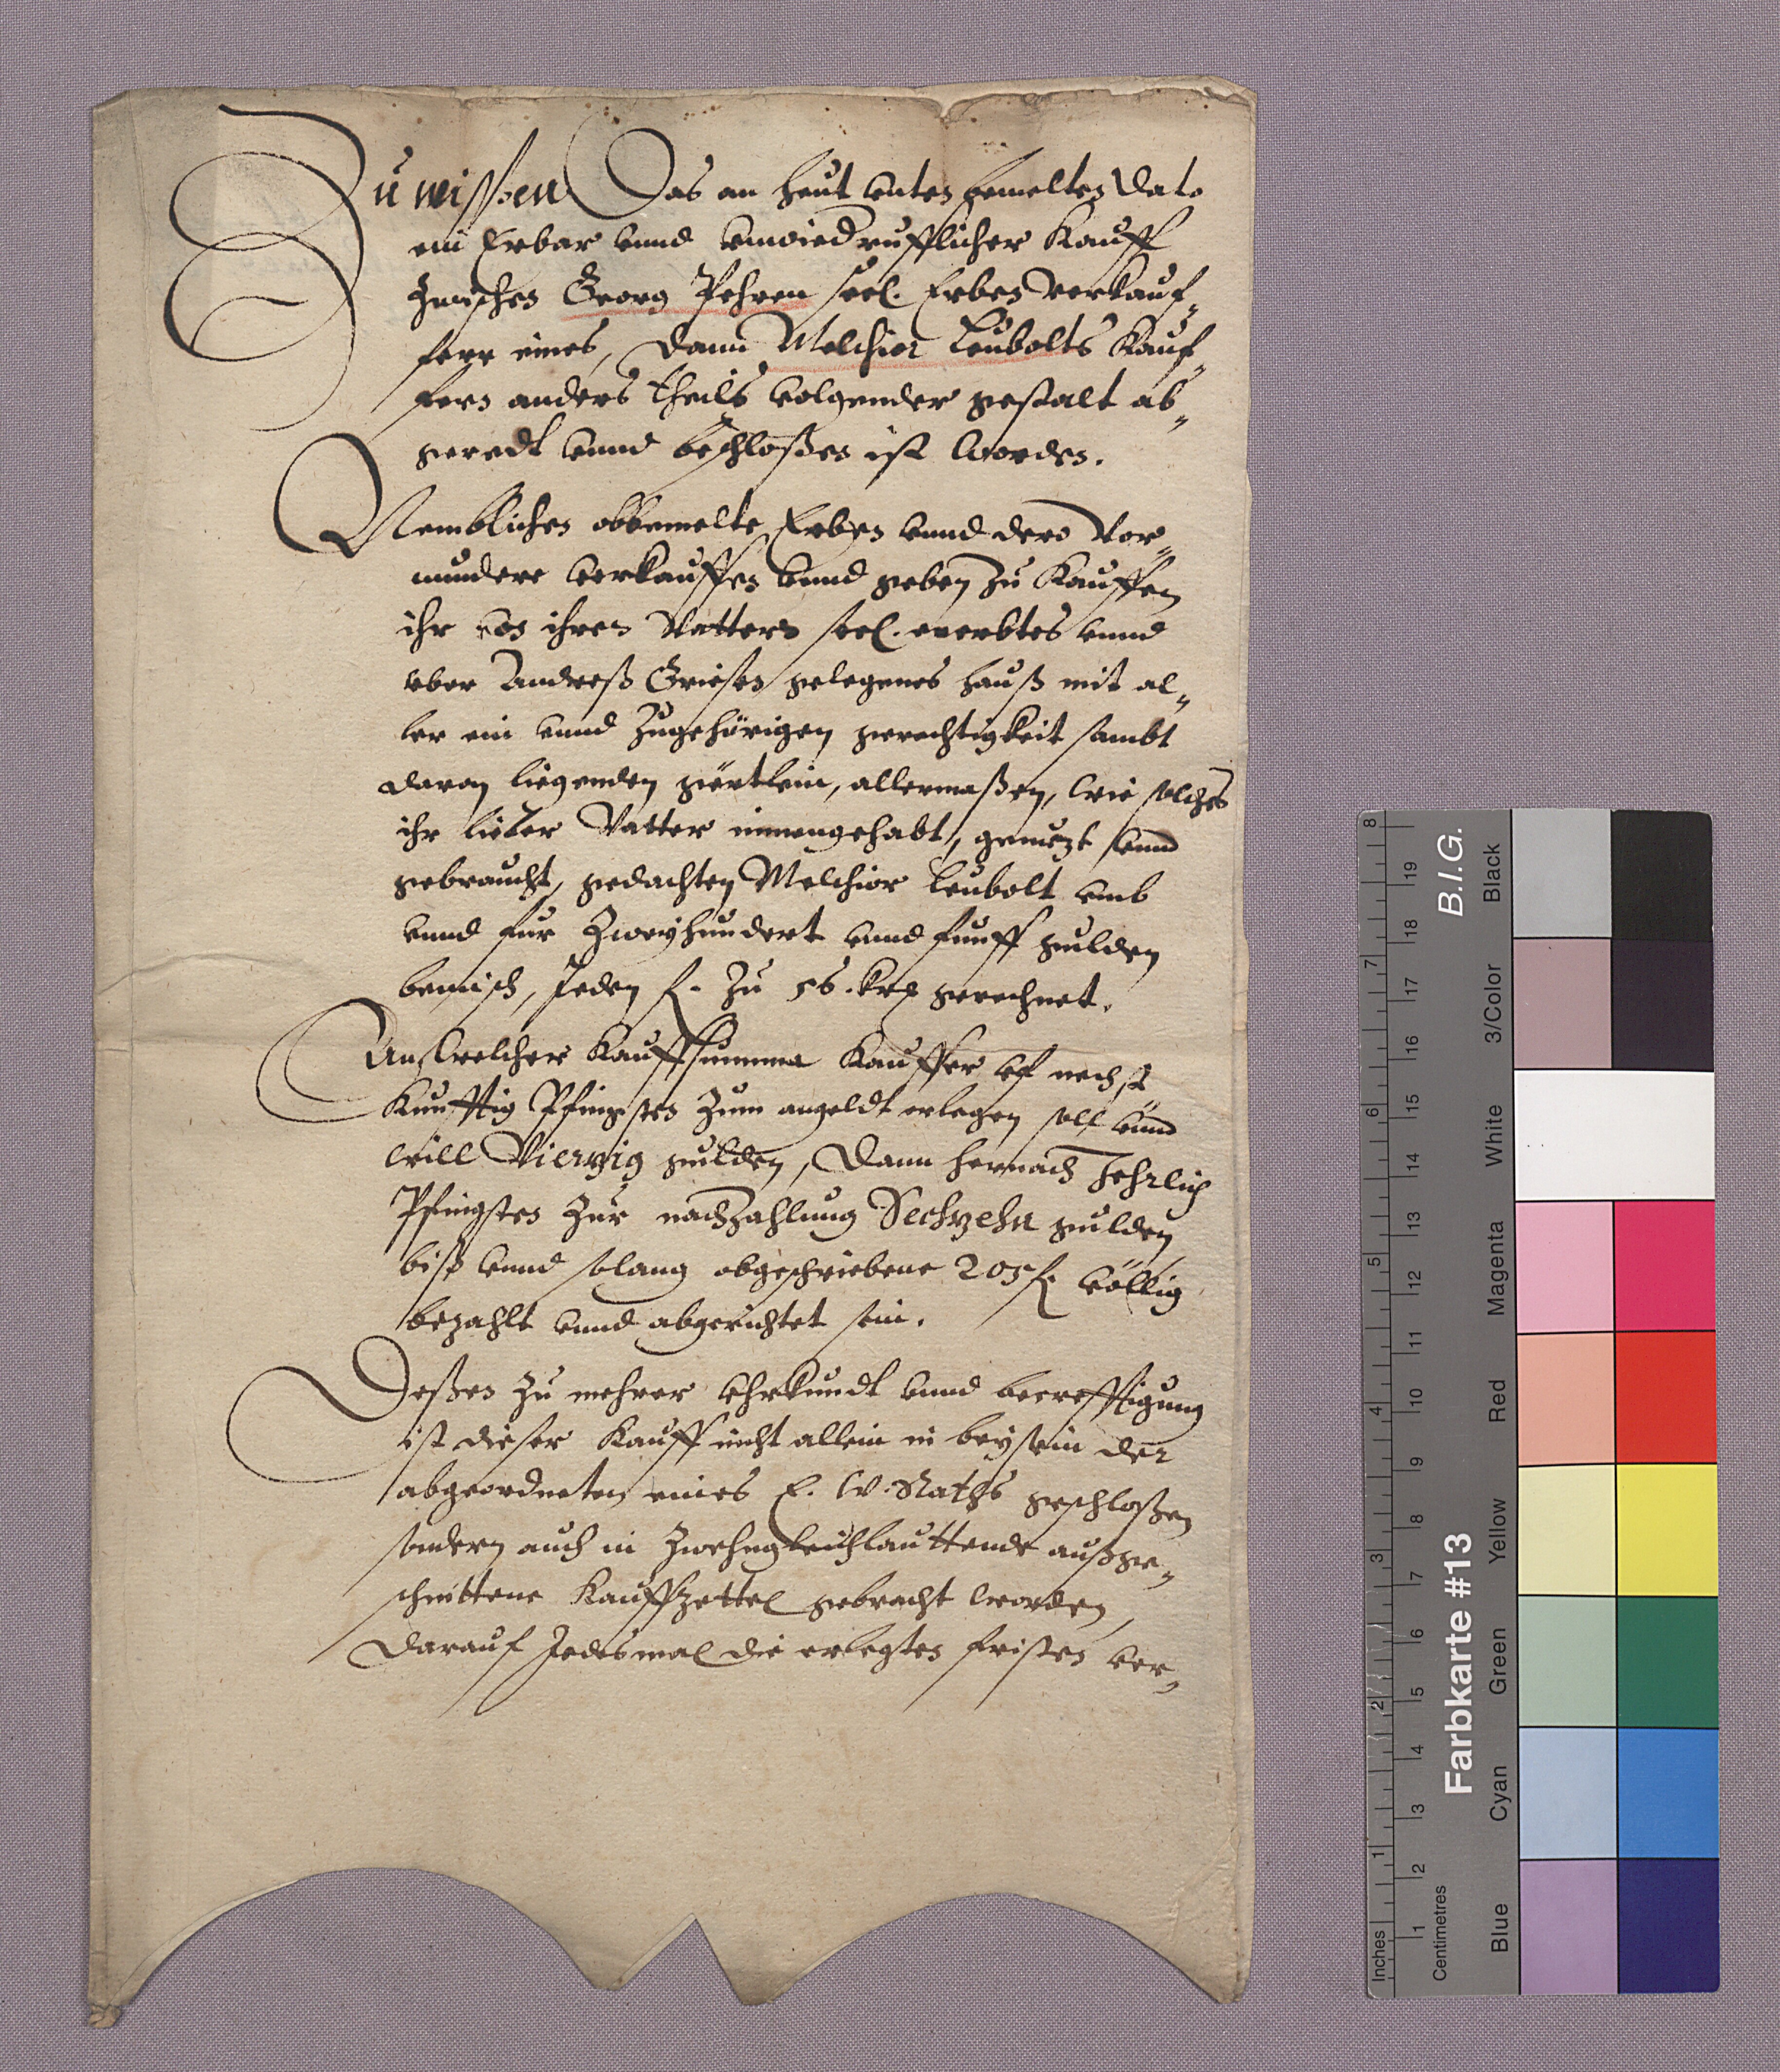 Zu wissen Das an heut unten bemelten Dato
ein Erbar unnd unwiedrufflicher Kauff
zwischen Georg Pehren seel. Erben verkauf-
ferr eines, dann Melchior Leubolts Kauf-
fers anders theils volgender gestalt ab-
geredt unnd beschloßen ist worden.
Nemblichen obbemelte Erben unnd dero Vor-
mundere verkauffen unnd geben zu Kauffen
ihr von ihren Vattern seel. ererbtes unnd
uber Andreß Griesen gelegenes hauß mit al-
ler ein unnd zugehörigen gerechtigkeit sambt
daran liegenden gärtlein, allermaßen, wie solches
ihr lieber Vatter innengehabt, genuzt unnd
gebraucht, gedachten Melchior Leubolt umb
unnd fur Zweyhundert unnd funff gulden
bemisch, Jeden f. zu 56. krz gerechnet.
An welcher Kauffsumma Kauffer uf nechst
Kunfftig Pfingsten zum angeldt erlegen soll unnd
will Vierzig gulden, Dann hernach Jehrlich
Pfingsten zur nachzahlung Sechzehn gulden
biß unnd solang obgeschriebene 205 f. völlig
bezahlt unnd abgerichtet sein.
Deßen zu mehrer Uhrkundt unnd becrefftigung
ist dieser Kauff nicht allein in beysein der
abgeordneten eines E. W. Raths geschloßen
sondern auch in Zwehn gleichlauttende außge-
schnittene Kauffzettel gebracht worden,
Darauf Jedesmal die erlegten fristen ver-
8
7
6
5
4
3
2
1
Inches
19
18
17
16
15
14
13
12
11
10
9
8
7
6
5
4
3
2
1
Centimetres
B.I.G.
Farbkarte #13
Black
3/Color
White
Magenta
Red
Yellow
Green
Cyan
Blue